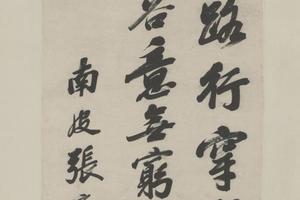 路行穿
意無窮
南皮張